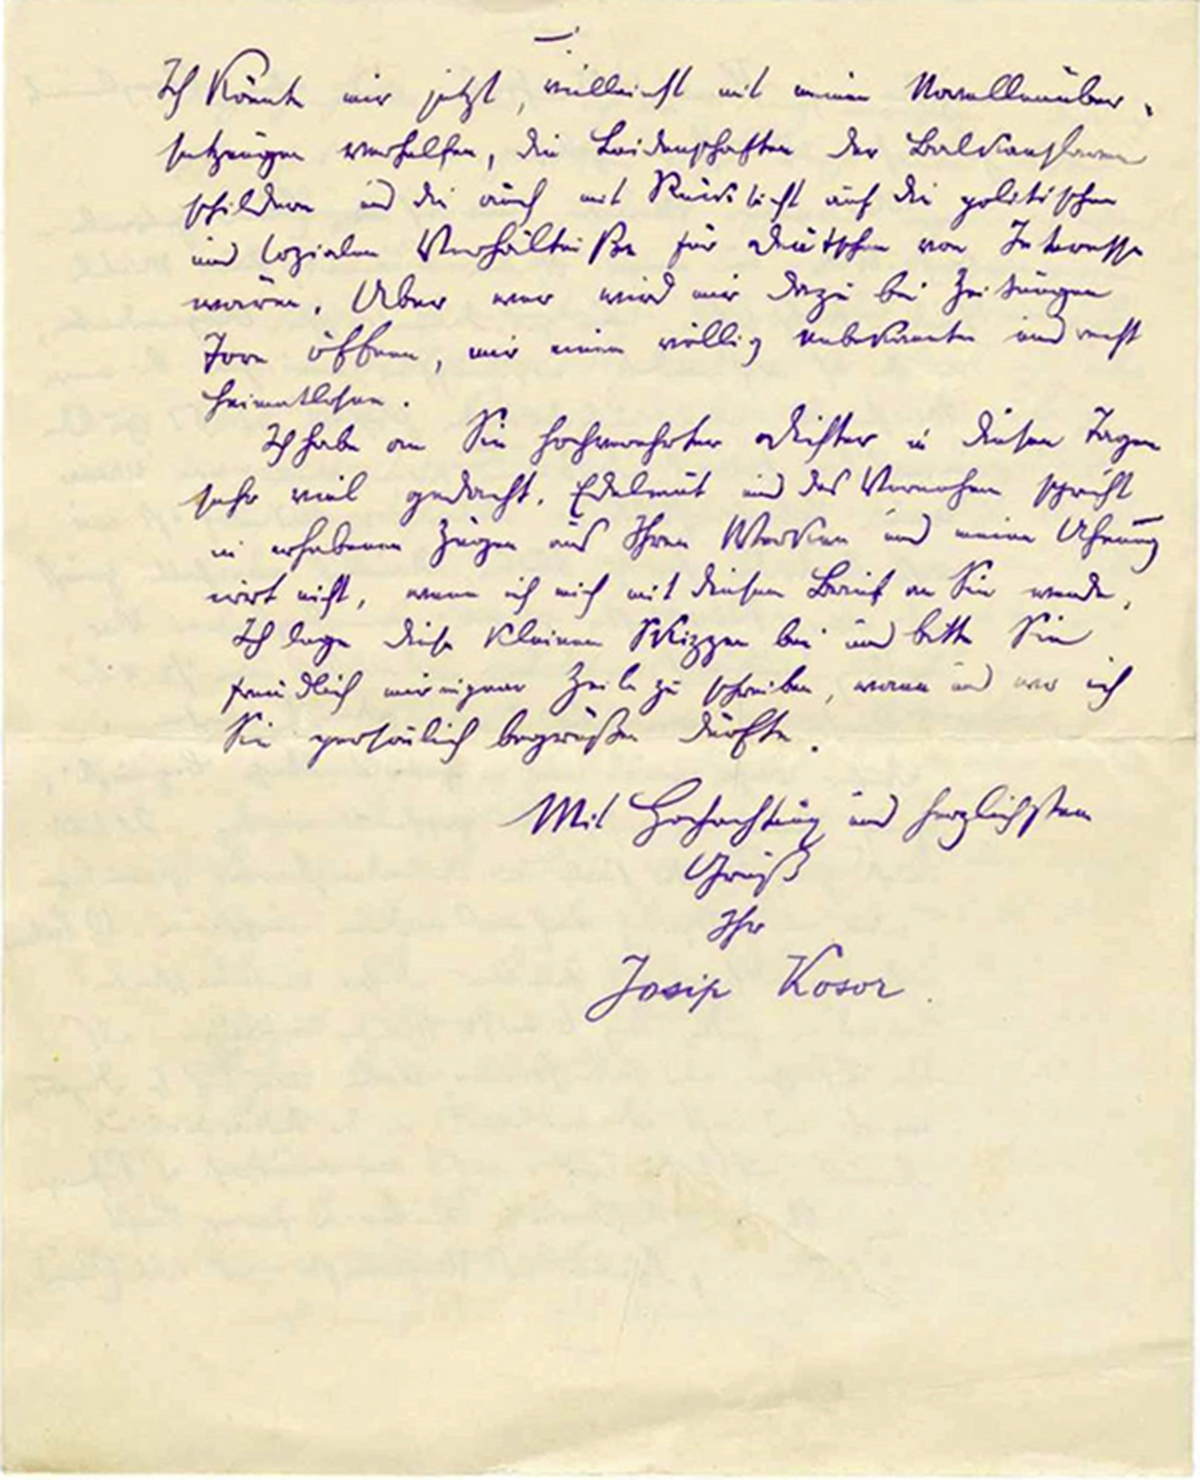 Ich könnte mir jetzt, vielleicht mit meinen Novellenüber-
setzungen verhelfen, die Leidenschaften der Balkanslaven
schildern und die auch mit Rücksicht auf die politischen
und sozialen Verhältniße für Deutschen von Interesse
wären. Aber wer wird mir dazu bei Zeitungen
Tore öffnen, mir einem völlig unbekannten und recht
heimatlosen.
Ich habe an Sie hochverehrter Dichter in diesen Tagen
sehr viel gedacht. Edelmut und das Vornehme spricht
in erhabenen Zügen aus Ihren Werken und meine Ahnung
irrt nicht, wenn ich mich mit diesem Brief an Sie wende.
Ich lege diese kleinen Skizzen bei und bitte Sie
freundlich mir einpaar Zeile zu schreiben, wann und wo ich
Sie persönlich begrüßen dürfte.
Mit Hochachtung und herzlichstem
Gruß
Ihr
Josip Kosor.